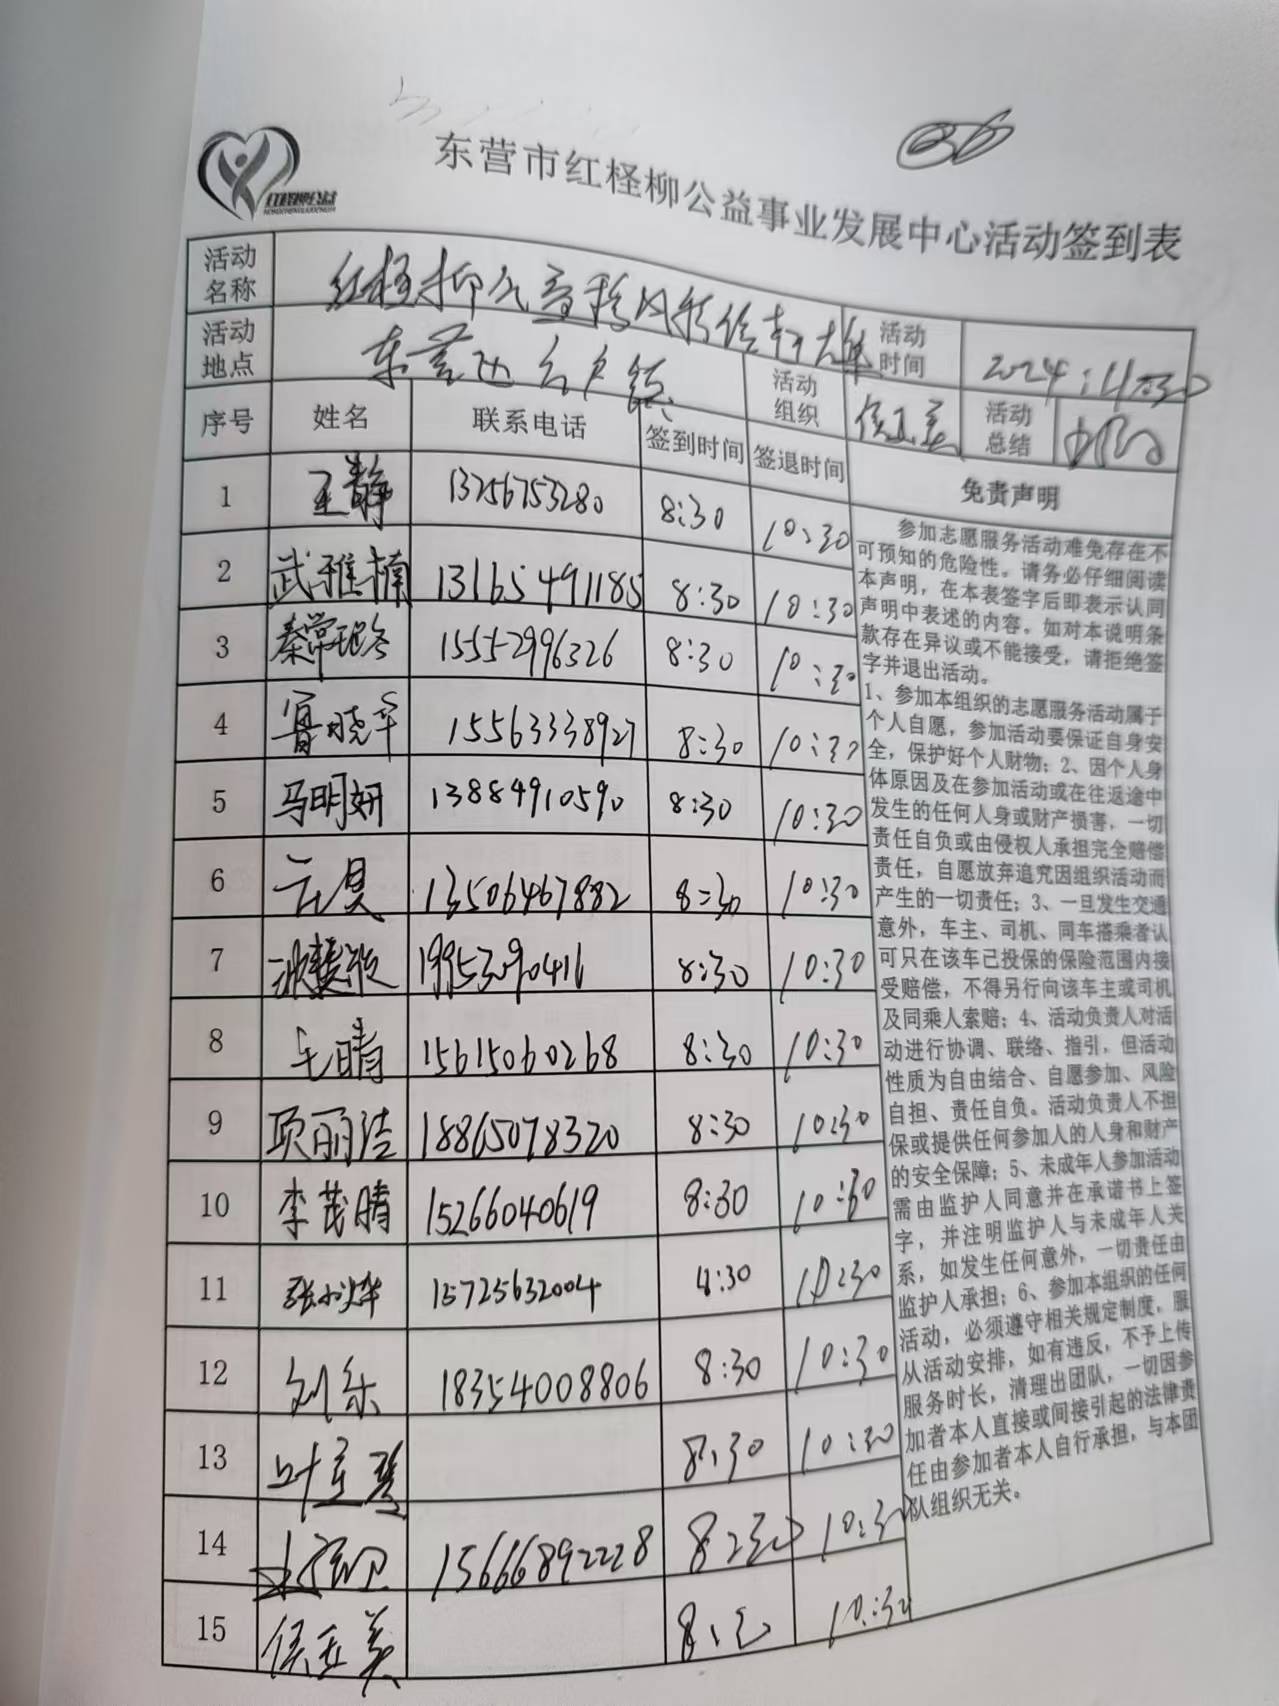 东营市红柽柳公益事业发展中心活动签到表
活动名称 红柽柳公益移风易俗
活动地点 东营区六户镇
活动时间 2024.11.30
活动组织 侯玉英
活动总结
序号 姓名 联系电话 签到时间 签退时间 免责声明
1 王静 13256753280 8:30 10:30
2 武雅楠 13165491185 8:30 10:30
3 秦常晓冬 15552996326 8:30 10:30
4 15563338927 8:30 10:30
5 马明妍 13884910590 8:30 10:30
6 13506467882 8:30 10:30
7 19953090416 8:30 10:30
8 王晴 15615060268 8:30 10:30
9 项丽洁 18865078320 8:30 10:30
10 李茂晴 15266040619 8:30 10:30
11 15725632004 8:30 10:30
12 刘乐 18354008806 8:30 10:30
13 8:30 10:30
14 15666892228 8:30 10:30
15 侯玉英 8:30 10:30
参加志愿服务活动难免存在不
可预知的危险性。请务必仔细阅读
本声明，在本表签字后即表示认同
声明中表述的内容。如对本说明条
款存在异议或不能接受，请拒绝签
字并退出活动。
1、参加本组织的志愿服务活动属于
个人自愿，参加活动要保证自身安
全，保护好个人财物；2、因个人身
体原因及在参加活动或在往返途中
发生的任何人身或财产损害，一切
责任自负或由侵权人承担完全赔偿
责任，自愿放弃追究因组织活动而
产生的一切责任；3、一旦发生交通
意外，车主、司机、同车搭乘者认
可只在该车已投保的保险范围内接
受赔偿，不得另行向该车主或司机
及同乘人索赔；4、活动负责人对活
动进行协调、联络、指引，但活动
性质为自由结合、自愿参加、风险
自担、责任自负。活动负责人不担
保或提供任何参加人的人身和财产
的安全保障；5、未成年人参加活动
需由监护人同意并在承诺书上签
字，并注明监护人与未成年人关
系，如发生任何意外，一切责任由
监护人承担；6、参加本组织的任何
活动，必须遵守相关规定制度，服
从活动安排，如有违反，不予上传
服务时长，清理出团队，一切因参
加者本人直接或间接引起的法律责
任由参加者本人自行承担，与本团
队组织无关。